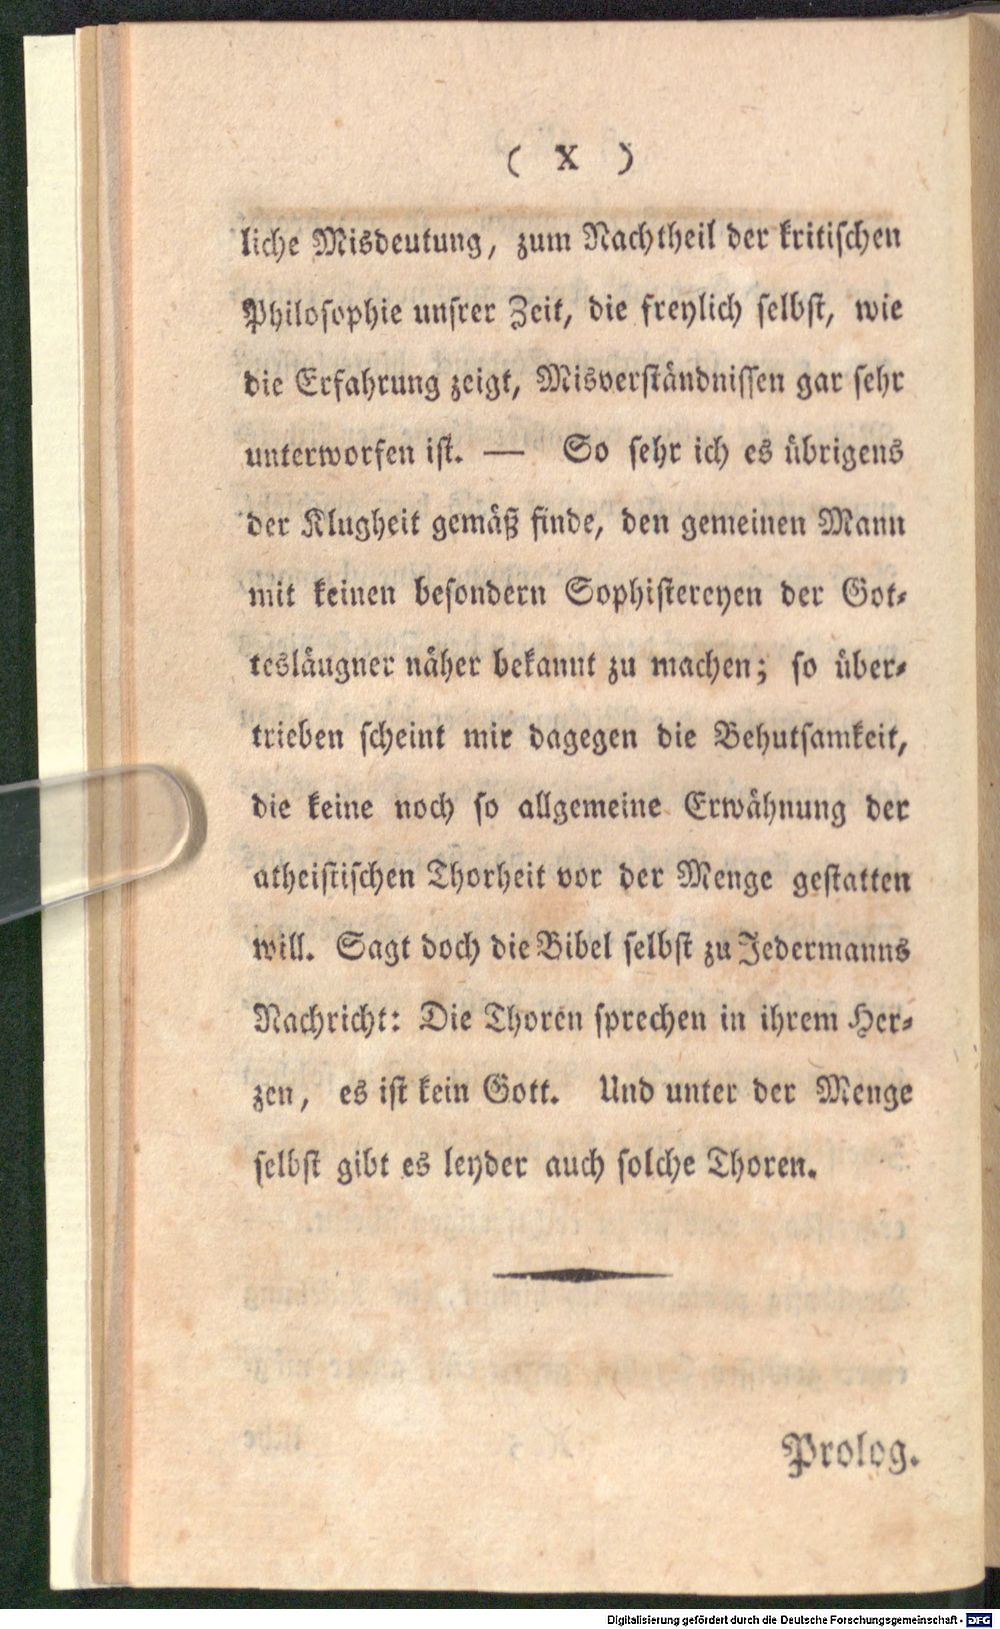 ( X )
liche Misdeutung, zum Nachtheil der kritischen
Philosophie unsrer Zeit, die freylich selbst, wie
die Erfahrung zeigt, Misverständnissen gar sehr
unterworfen ist. — So sehr ich es übrigens
der Klugheit gemäß finde, den gemeinen Mann
mit keinen besondern Sophistereyen der Got-
tesläugner näher bekannt zu machen; so über-
trieben scheint mir dagegen die Behutsamkeit,
die keine noch so allgemeine Erwähnung der
atheistischen Thorheit vor der Menge gestatten
will. Sagt doch die Bibel selbst zu Jedermanns
Nachricht: Die Thoren sprechen in ihrem Her-
zen, es ist kein Gott. Und unter der Menge
selbst gibt es leyder auch solche Thoren.
Prolog.
Digitalisierung gefördert durch die Deutsche Forschungsgemeinschaft - DFG